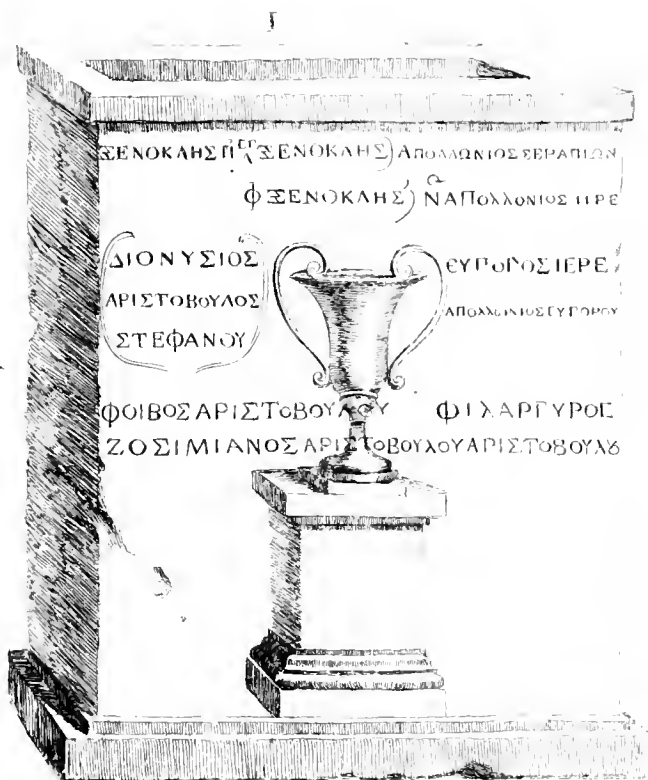 ΞΕΝΟΚΛΗΣ ΞΕΝΟΚΛΗΣ) ΑΠΟΛΛΩΝΙΟΣ ΣΕΡΑΠΙΩΝ
ΦΞΕΝΟΚΛΗΣ) ΝΑΠΟΛΛΟΝΙΟΣ
ΔΙΟΝΥΣΙΟΣ
ΑΡΙΣΤΟΒΟΥΛΟΣ
ΣΤΕΦΑΝΟΥ
ΕΥΠΟΡΟΣΙΕΡΕ
ΑΠΟΛΛΩΝΙΟΣΕΥΠΟΡΟΥ
ΦΟΙΒΟΣΑΡΙΣΤΟΒΟΥΛΟΥ ΦΙΛΑΡΓΥΡΟΣ
ΖΟΣΙΜΙΑΝΟΣΑΡΙΣΤΟΒΟΥΛΟΥΑΡΙΣΤΟΒΟΥΛȣ